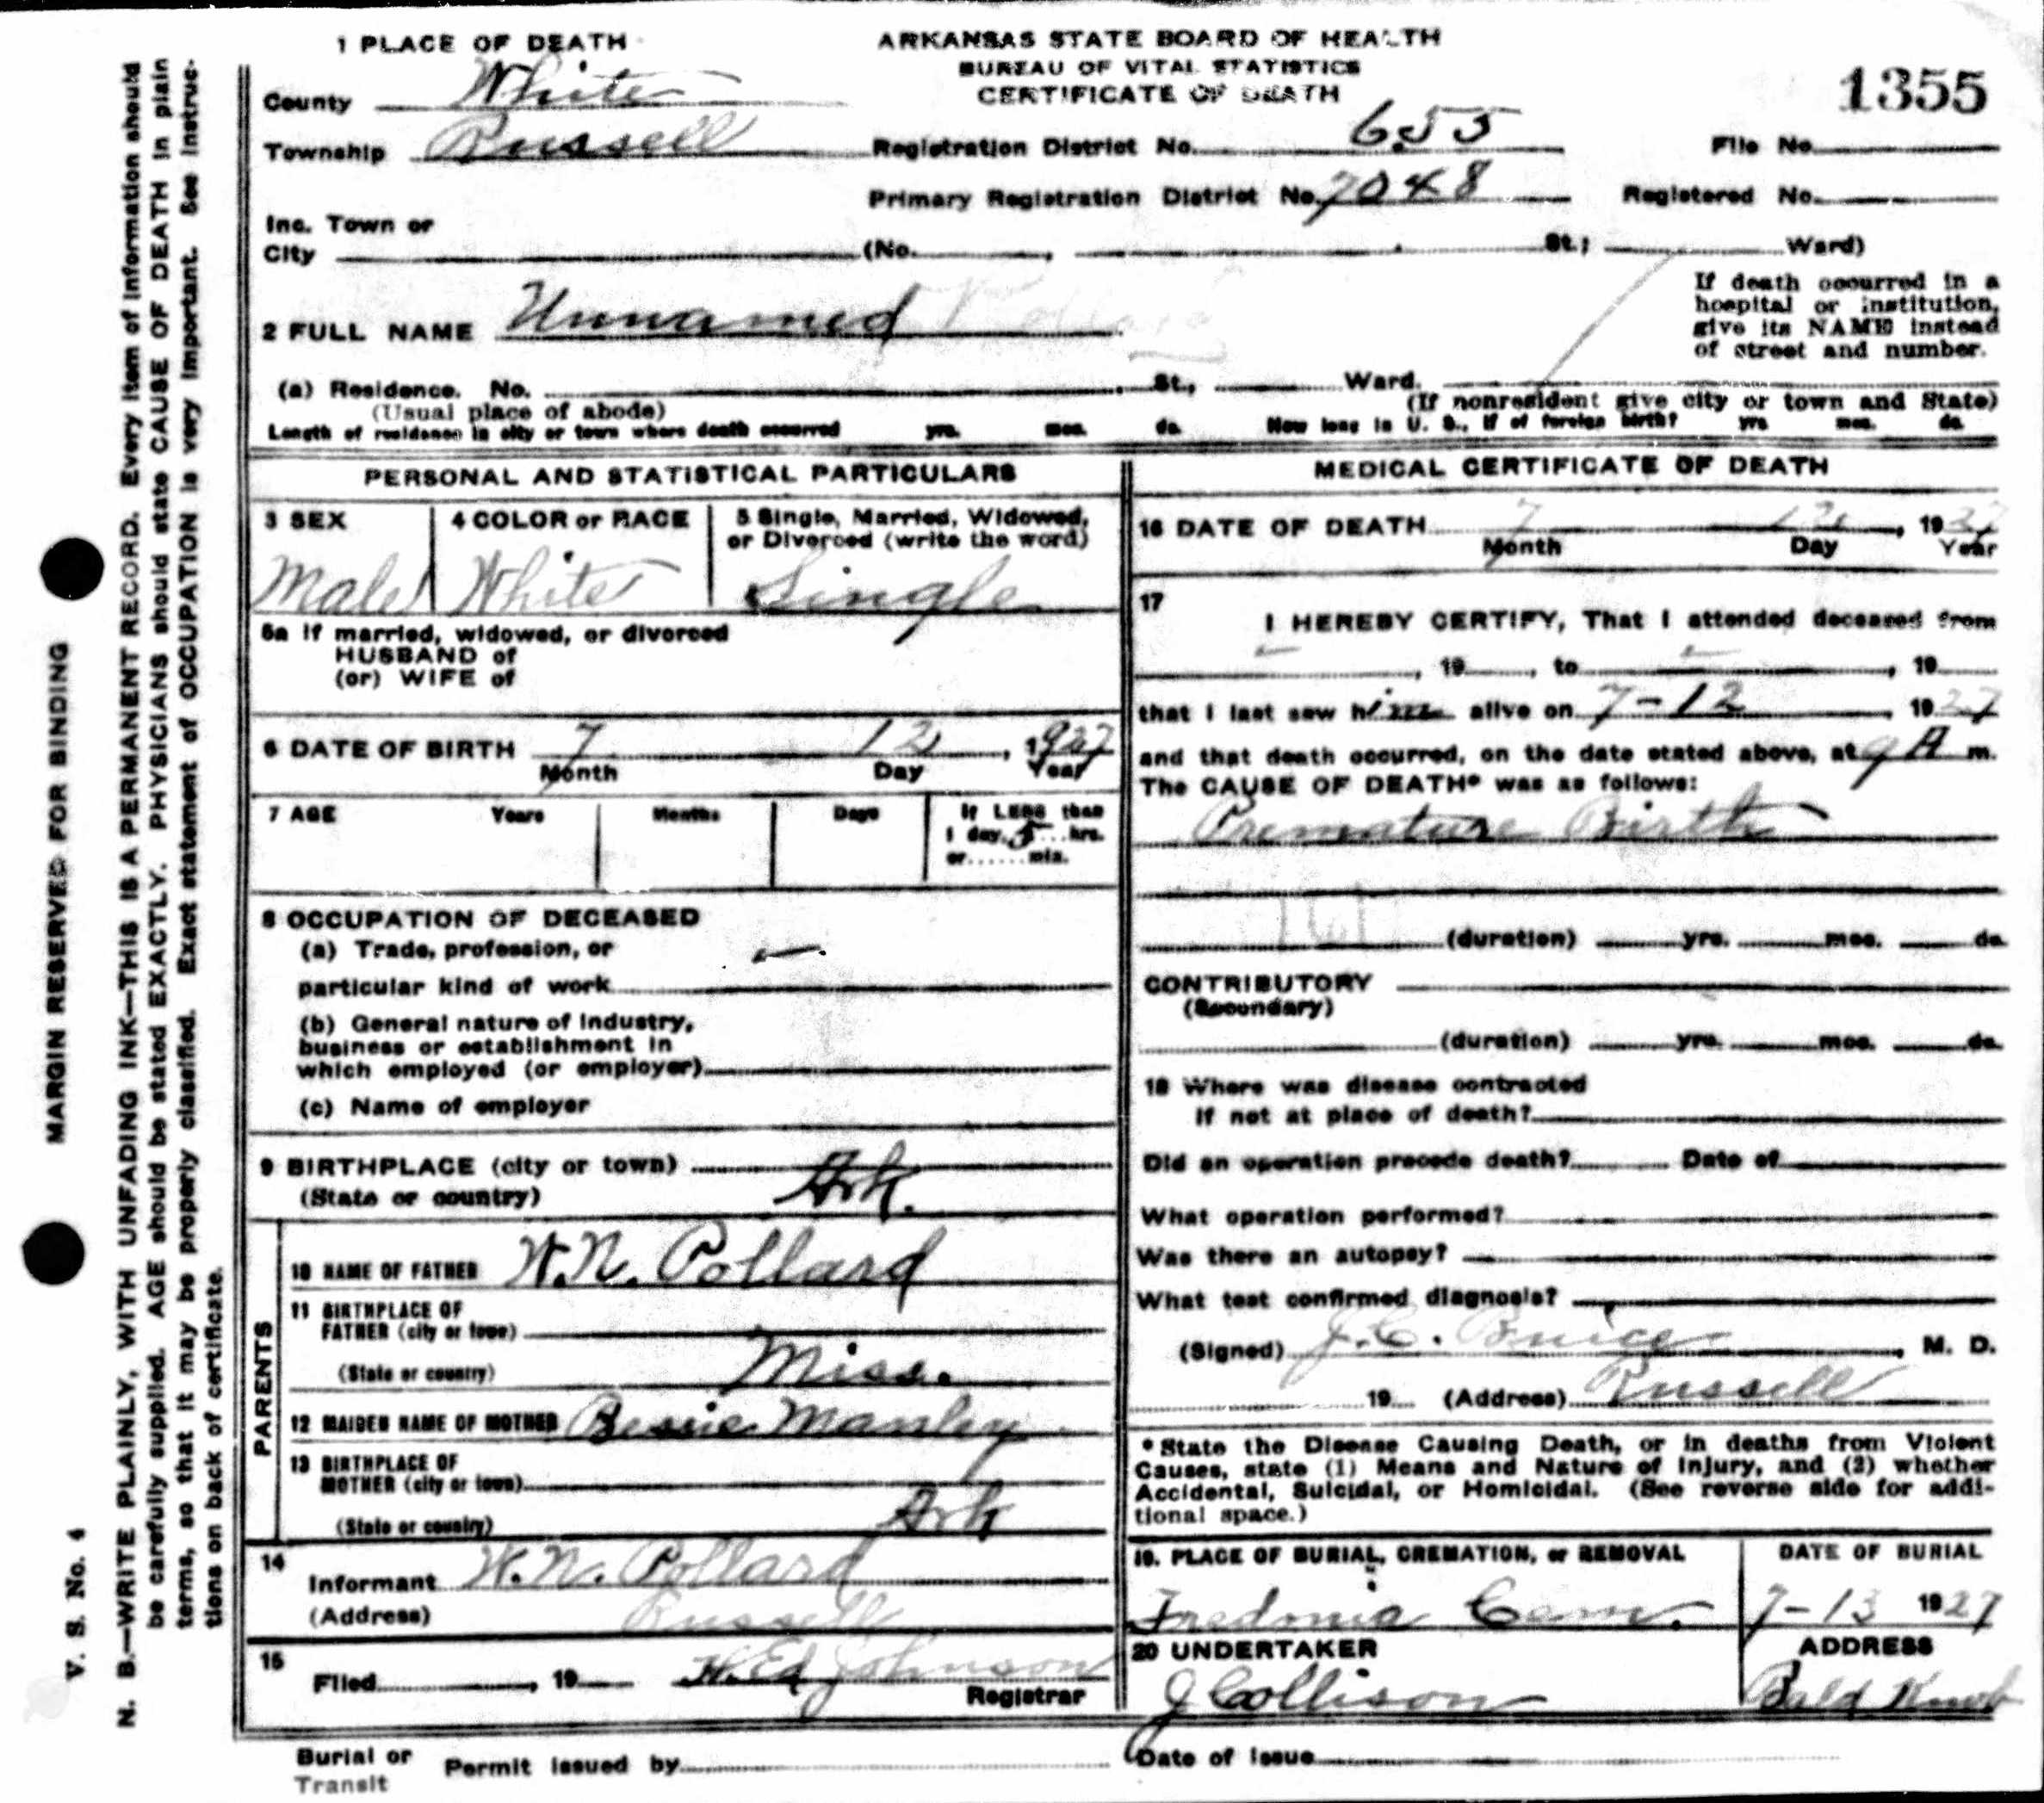 1 PLACE OF DEATH
ARKANSAS STATE BOARD OF HEALTH
BUREAU OF VITAL STATISTICS
CERTIFICATE OF DEATH
1355
County White
Township Russell
Registration District No. 655
File No.
Primary Registration District No. 7048
Registered No.
Inc. Town or
City (No. , St.; Ward)
2 FULL NAME Unnamed Pollard
If death occurred in a
hospital or institution,
give its NAME instead
of street and number.
(a) Residence. No. St., Ward.
(Usual place of abode)
(If nonresident give city or town and State)
Length of residence in city or town where death occurred yrs. mos. ds. How long in U. S., if of foreign birth? yrs mos. ds.
PERSONAL AND STATISTICAL PARTICULARS
3 SEX
Male
4 COLOR or RACE
White
5 Single, Married, Widowed,
or Divorced (write the word)
Single
5a If married, widowed, or divorced
HUSBAND of
(or) WIFE of
6 DATE OF BIRTH 7 12, 1927
Month Day Year
7 AGE Years Months Days
If LESS than
1 day, 5 hrs.
or......min.
8 OCCUPATION OF DECEASED
(a) Trade, profession, or
particular kind of work
(b) General nature of industry,
business or establishment in
which employed (or employer)
(c) Name of employer
9 BIRTHPLACE (city or town)
(State or country) Ark.
PARENTS
10 NAME OF FATHER W.N. Pollard
11 BIRTHPLACE OF
FATHER (city or town)
(State or country) Miss.
12 MAIDEN NAME OF MOTHER Bessie Manley
13 BIRTHPLACE OF
MOTHER (city or town)
(State or country) Ark
14
Informant W.N. Pollard
(Address) Russell
15
Filed , 19 H. Ed Johnson
Registrar
MEDICAL CERTIFICATE OF DEATH
16 DATE OF DEATH 7 12, 1927
Month Day Year
17
I HEREBY CERTIFY, That I attended deceased from
, 19 , to , 19
that I last saw him alive on 7-12 1927
and that death occurred, on the date stated above, at 9 A m.
The CAUSE OF DEATH* was as follows:
Premature Birth
161
(duration) yrs. mos. ds.
CONTRIBUTORY
(Secondary)
(duration) yrs. mos. ds.
18 Where was disease contracted
if not at place of death?
Did an operation precede death? Date of
What operation performed?
Was there an autopsy?
What test confirmed diagnosis?
(Signed) J.C. Bruice, M. D.
19 (Address) Russell
*State the Disease Causing Death, or in deaths from Violent
Causes, state (1) Means and Nature of Injury, and (2) whether
Accidental, Suicidal, or Homicidal. (See reverse side for addi-
tional space.)
19. PLACE OF BURIAL, CREMATION, or REMOVAL
Fredonia Cem.
DATE OF BURIAL
7-13 1927
20 UNDERTAKER
J Collison
ADDRESS
Bald Knob
Burial or
Transit
Permit issued by
Date of Issue
MARGIN RESERVED FOR BINDING
V. S. No. 4
N. B.—WRITE PLAINLY, WITH UNFADING INK—THIS IS A PERMANENT RECORD. Every item of information should
be carefully supplied. AGE should be stated EXACTLY. PHYSICIANS should state CAUSE OF DEATH in plain
terms, so that it may be properly classified. Exact statement of OCCUPATION is very important. See instruc-
tions on back of certificate.